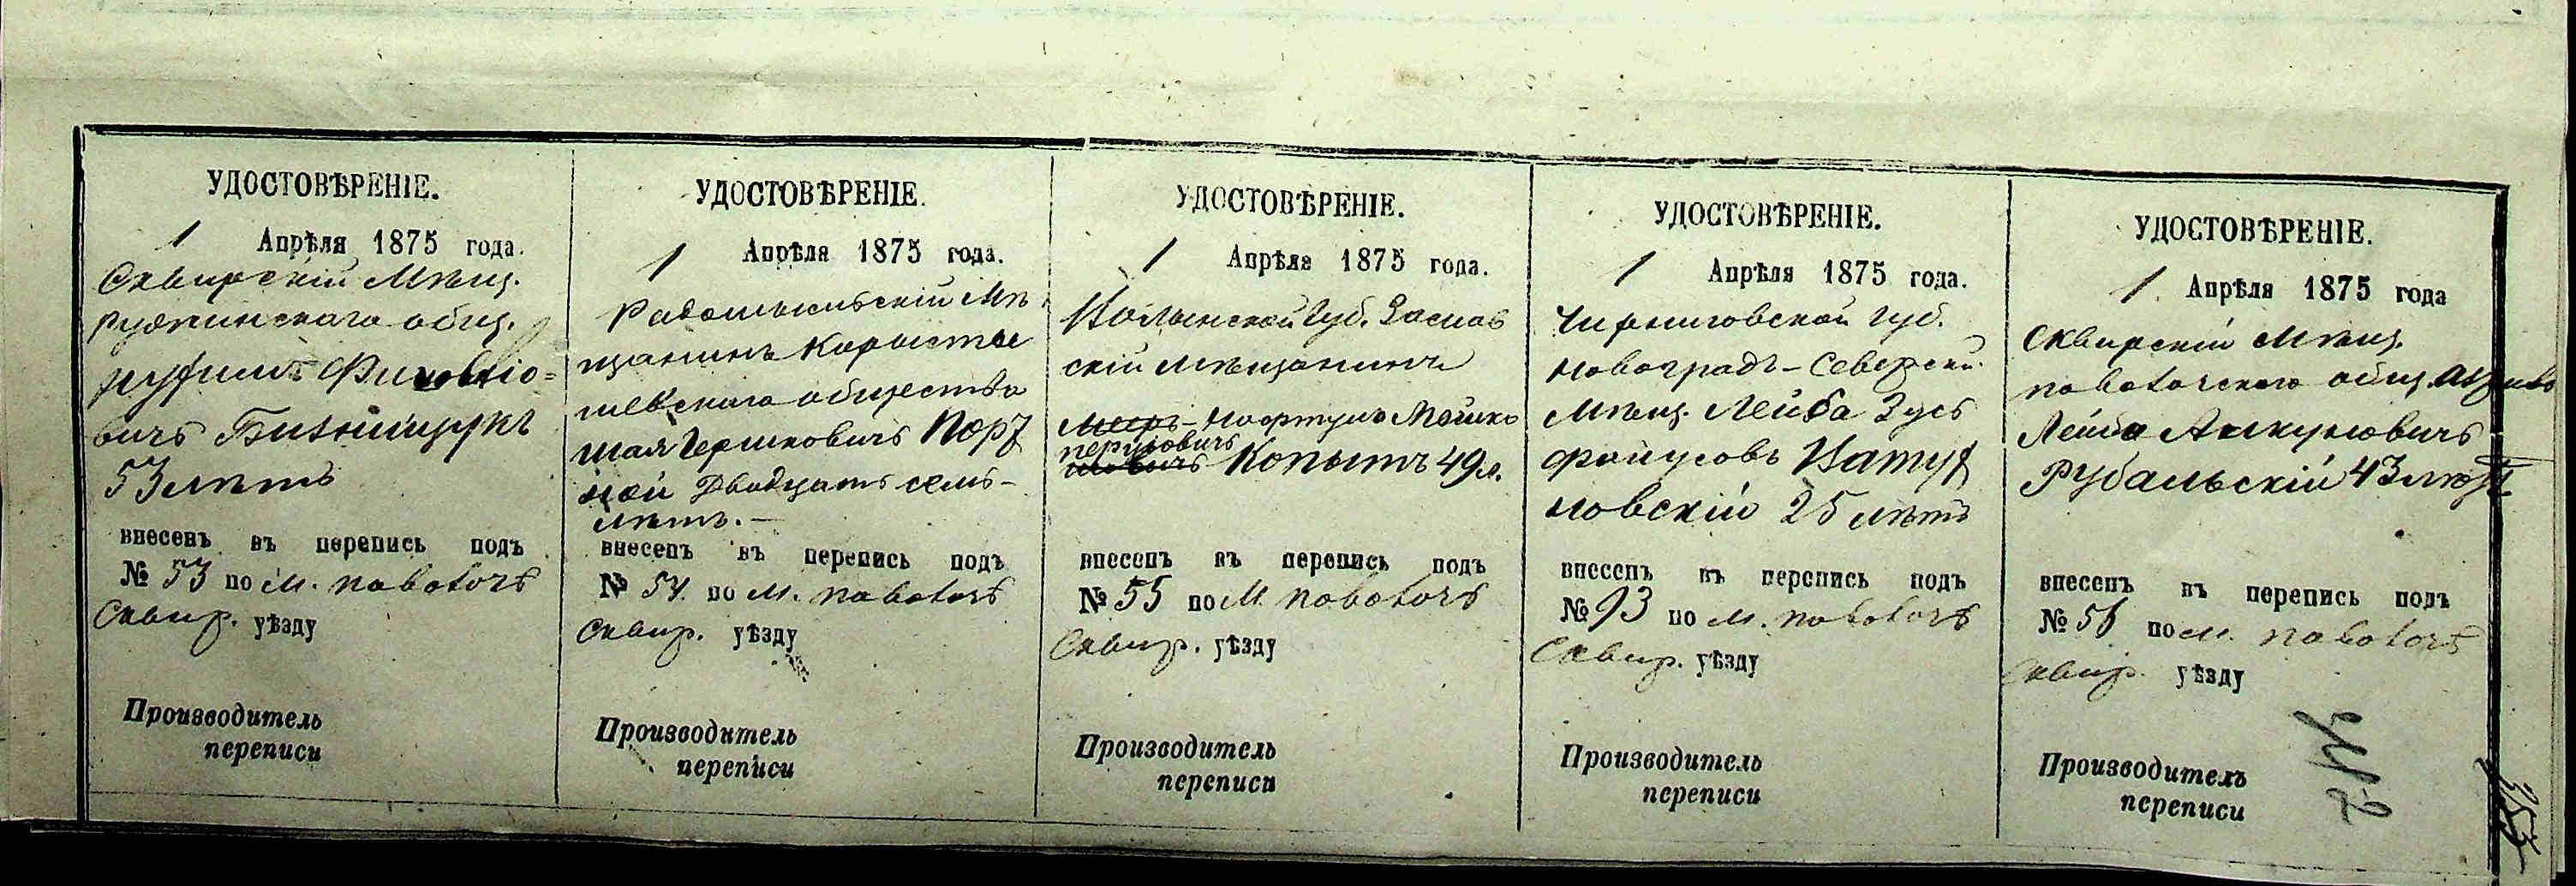 УДОСТОВѢРЕНІЕ.
1 Апрѣля 1875 года.
Сквирскій Мѣщ.
ружинскаго общ.
вичъ
53 лѣтъ
внесенъ въ перепись подъ
№ 53 по М. паволочѣ
Сквир. уѣзду
Производитель
переписи
УДОСТОВѢРЕНІЕ.
1 Апрѣля 1875 года.
Радомысльскій Мѣ
щанинъ Коросты
шевскаго общества
Гершковичъ
Двадцать семь
лѣтъ.
внесенъ въ перепись подъ
№ 54. по М. паволочѣ
Сквир. уѣзду
Производитель
переписи
УДОСТОВѢРЕНІЕ.
1 Апрѣля 1875 года.
Волынской Губ. Заслав
скій мѣщанинъ
Мошко
Копытъ 49 л.
внесенъ въ перепись подъ
№ 55 по М. паволочѣ
Сквир. уѣзду
Производитель
переписи
УДОСТОВѢРЕНІЕ.
1 Апрѣля 1875 года.
Черниговской губ.
Новоградъ-Северскій
Мѣщ. Лейба Зусь
25 лѣтъ
внесенъ въ перепись подъ
№ 93 по М. паволочѣ
Сквир. уѣзду
Производитель
переписи
УДОСТОВѢРЕНІЕ.
1. Апрѣля 1875 года
Сквирскій Мѣщ.
паволочскаго общ.
Лейба
Рубальскій 43 лѣтъ
внесенъ въ перепись подъ
№ 56 по М. паволочѣ
Сквир. уѣзду
Производитель
переписи